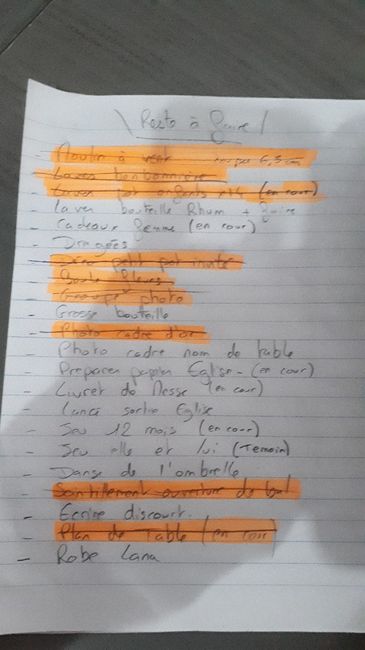 Reste à faire
- Moulin à vent rouge 6,5 cm
- Laver bonbonnière
- Laver pot enfants x14 (en cour)
- Laver bouteille Rhum + faire
- Cadeaux femme (en cour)
- Dragées
- petit pot invité
- Boule fleurs
- photo
- Grosse bouteille
- Photo cadre d'or
- Photo cadre nom de table
- Preparer papier Eglise - (en cour)
- Livret de Messe (en cour)
- Lancé sortie Eglise
- Jeu 12 mois (en cour)
- Jeu elle et lui (Temoin)
- Danse de l'ombrelle
- ouverture de bal
- Ecrire discourt.
- Plan de Table (en cour)
- Robe Lana